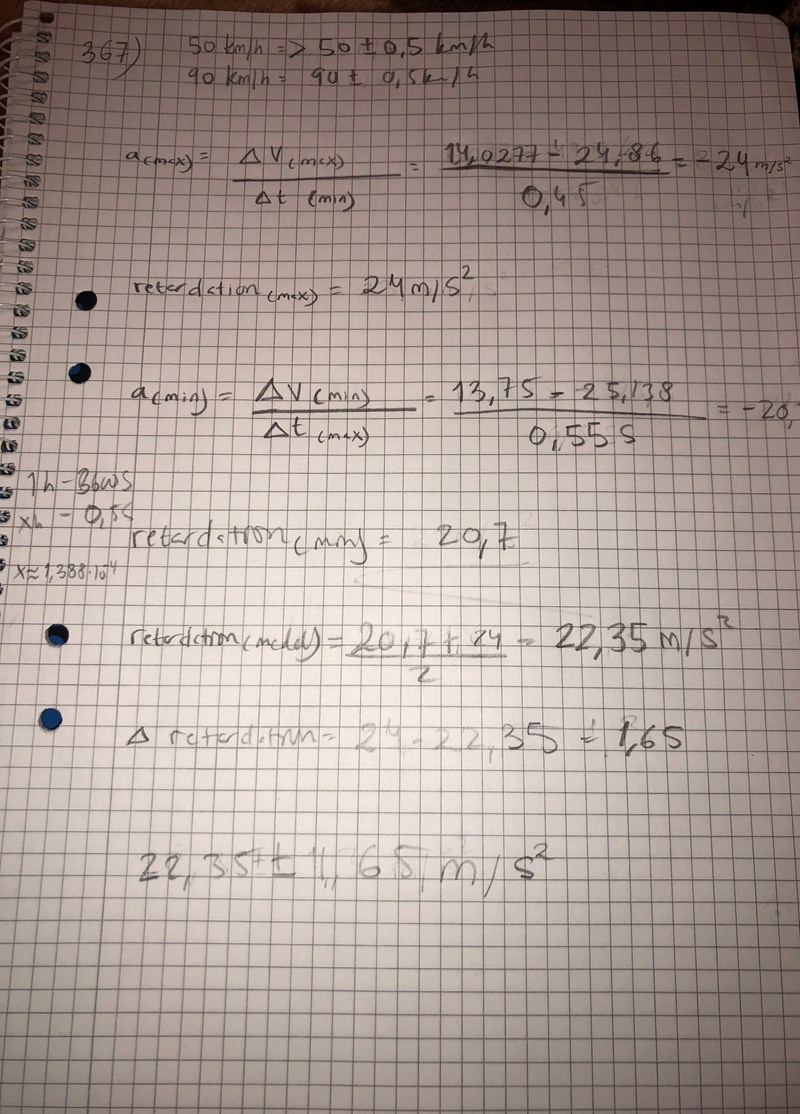 367) 50 km/h => 50 ± 0,5 km/h
90 km/h = 90 ± 0,5km/h
a(max) = ΔV(max) / Δt (min) = 14,0277 - 24,86 / 0,45 = -24 m/s²
retardation(max) = 24 m/s²
a(min) = ΔV(min) / Δt (max) = 13,75 - 25,138 / 0,55 s = -20,
1h - 3600s
xh - 0,5s
retardation(min) = 20,7
x≈1,388·10⁻⁴
retardation(medel) = 20,7 + 24 / 2 = 22,35 m/s²
Δ retardation = 24 - 22,35 = 1,65
22,35 ± 1,65 m/s²